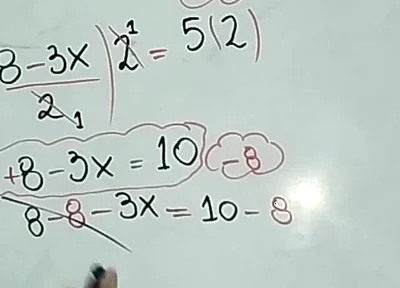 8-3x/2 1)2 1 = 5(2)
+8-3x = 10 (-8)
8-8-3x = 10-8